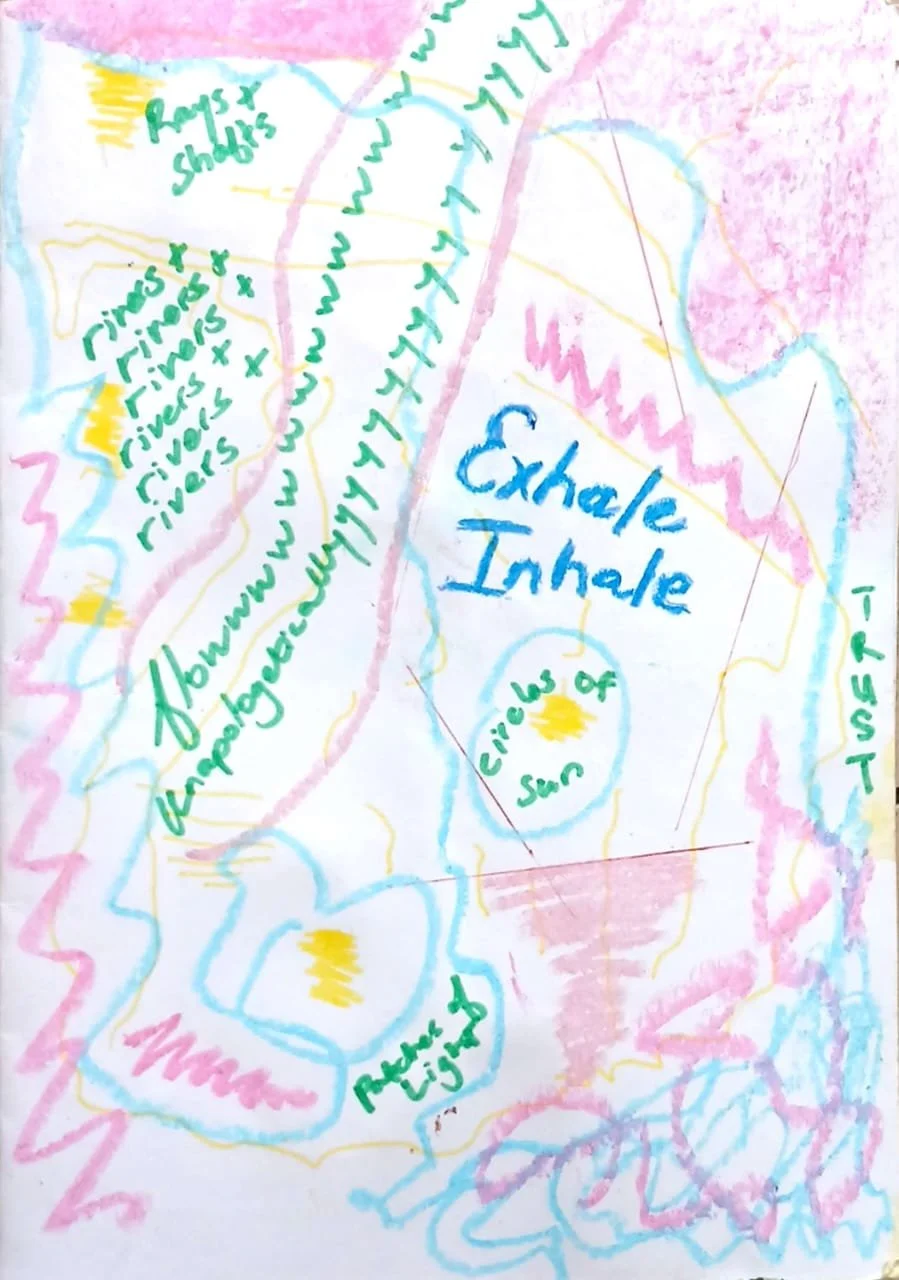 Rays x
shafts
rivers x x
rivers x
rivers
rivers x x
rivers
rivers
flowwwwwwwwwwwwwwwwwwwwww
Unapologeticallyyyyyyyyyyyyyyyyyyyyyyyy
Exhale
Inhale
circles of
sun
TRUST
Patches of
Light